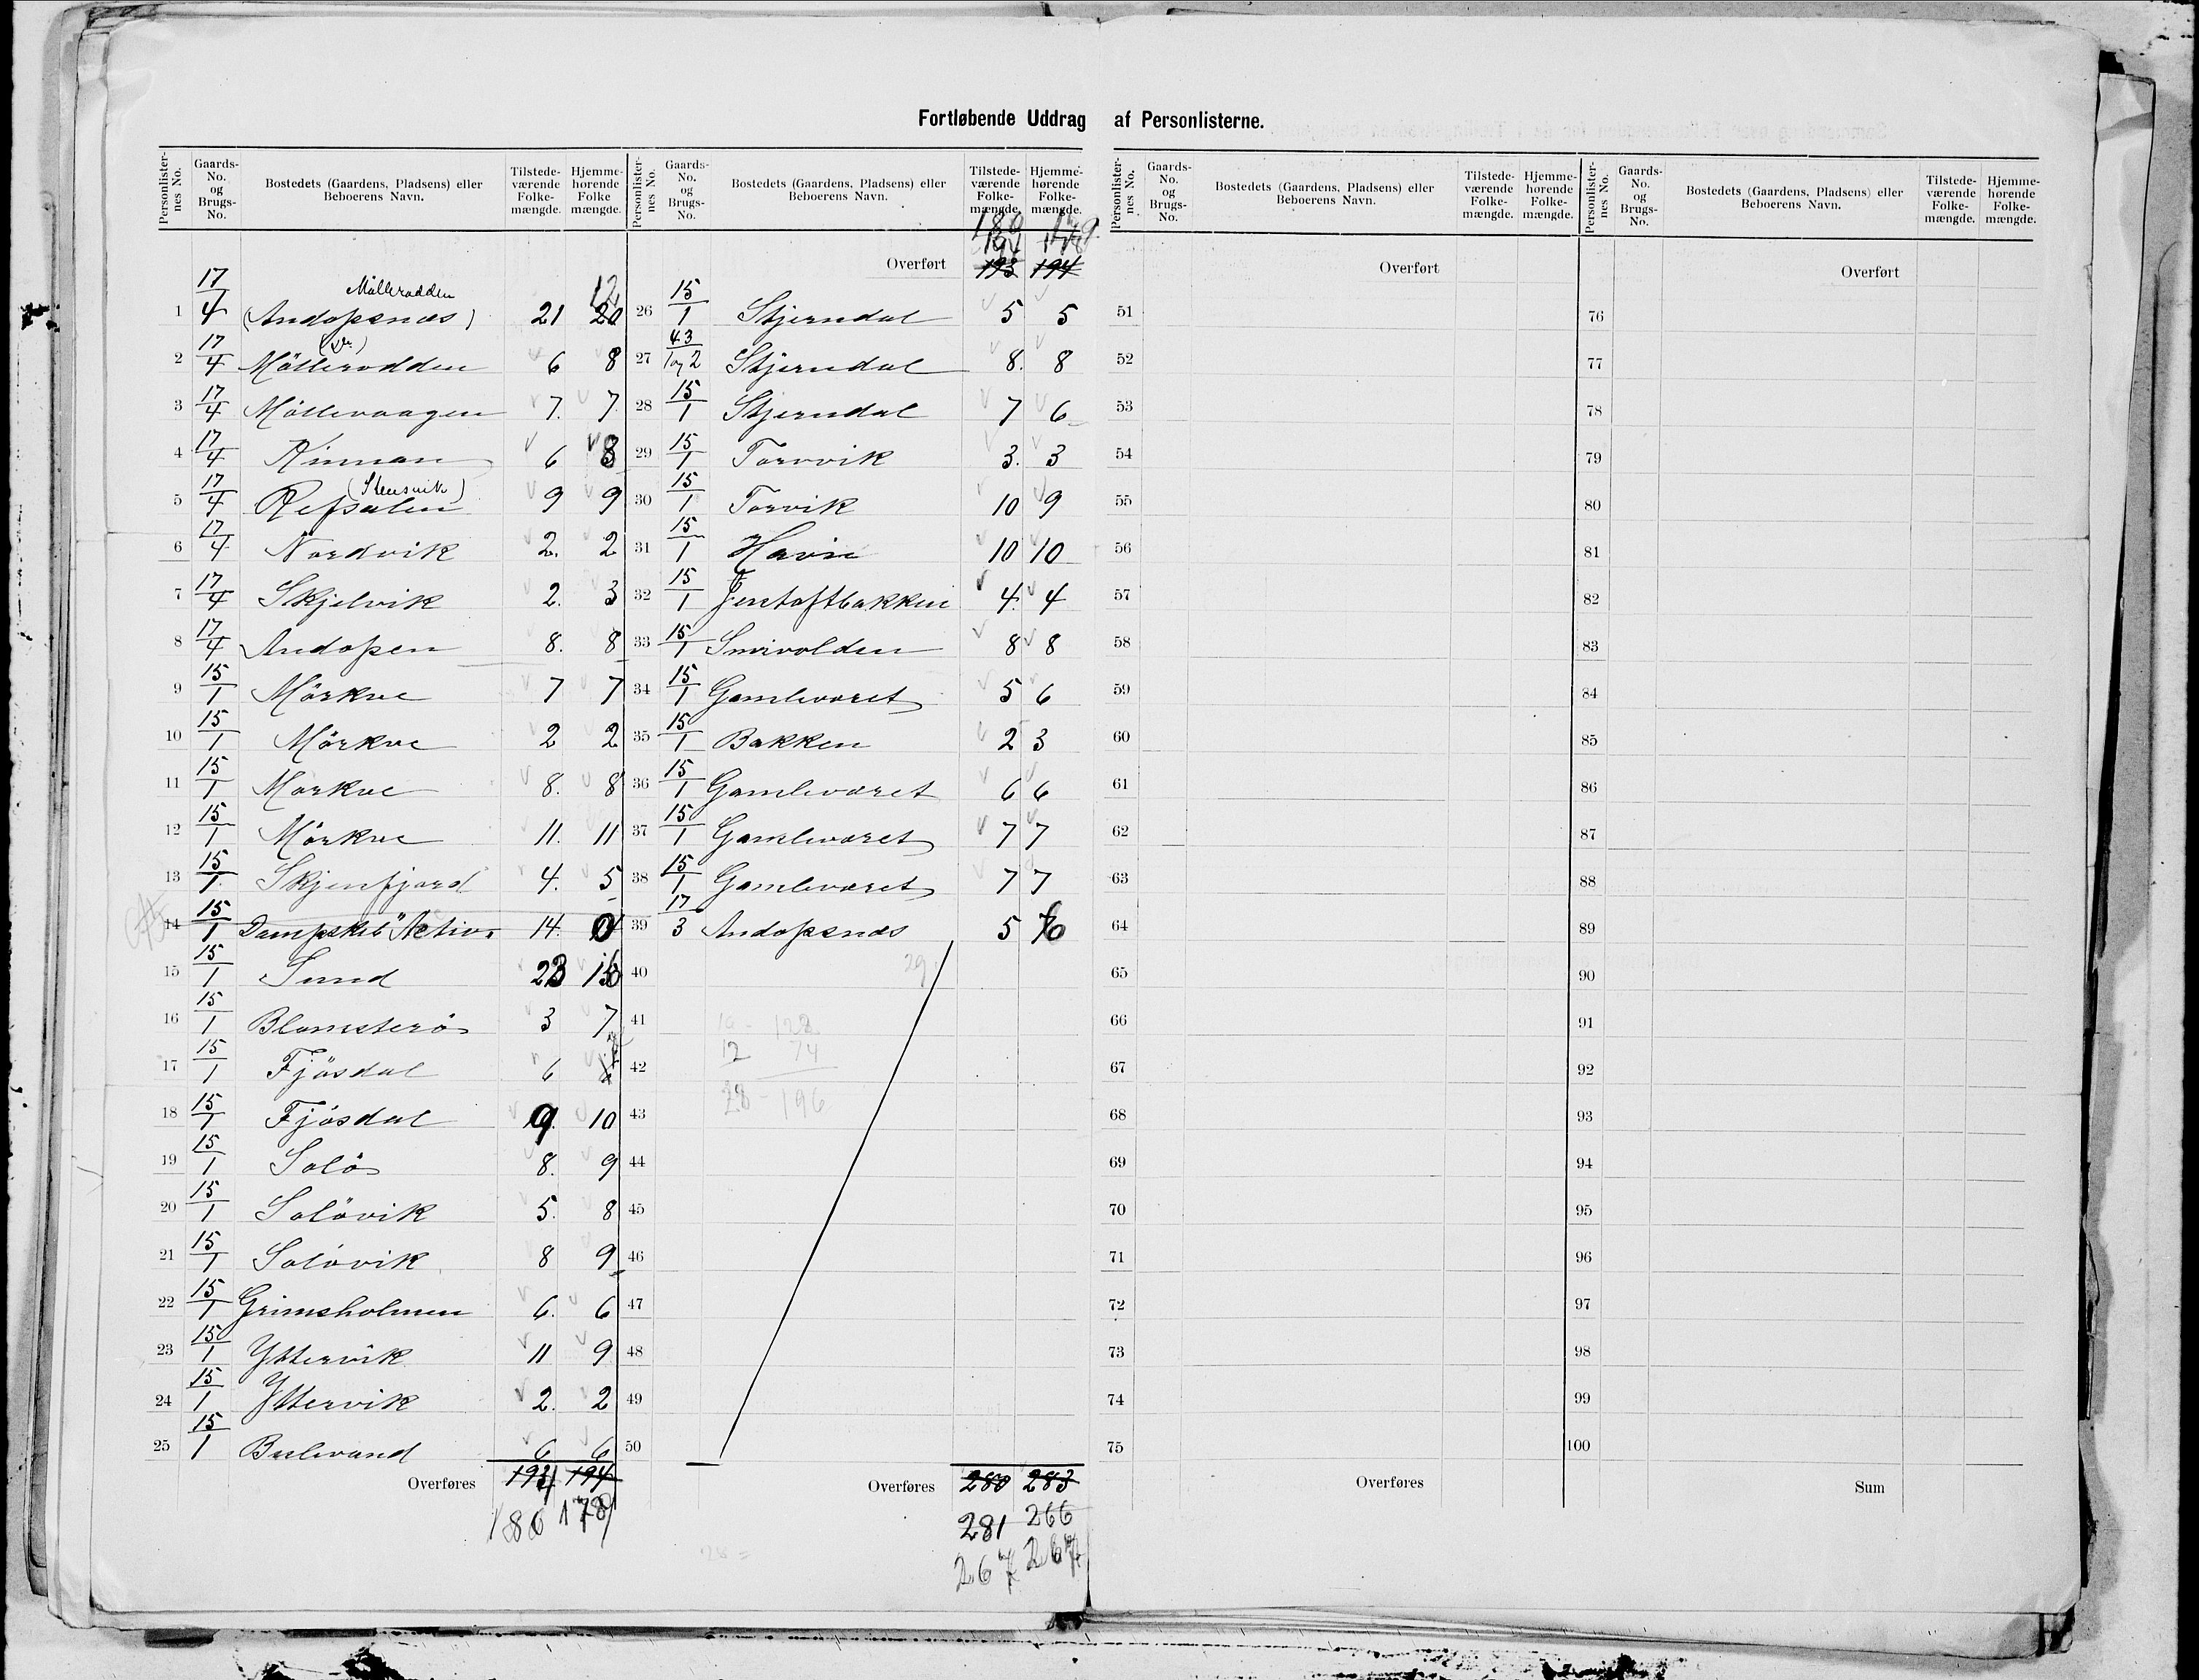 Fortløbende Uddrag af Personlisterne.
Personlister-nes No. | Gaards-No. og Brugs-No. | Bostedets (Gaardens, Pladsens) eller Beboerens Navn. | Tilstede-værende Folke-mængde. | Hjemme-hørende Folke mængde.
1 17/4 Mölleradden (Andopsnæs) 21
2 17/4 Mölleradden 6 8
3 17/4 Möllevaagen 7. 7
4 17/4 Rinnan 6 8
5 17/4 Refsalen (Stensvik) 9 9
6 17/4 Nordvik 2. 2
7 17/4 Skjelvik 2. 3
8 17/4 Andopen 8. 8
9 15/1 Mörkve 7 7
10 15/1 Mörkve 2 2
11 15/1 Mörkve 8. 8
12 15/1 Mörkve 11. 11
13 15/1 Skjenfjord 4. 5
14 15/1 Dampskib "Activ" 14. 0
15 15/1 Sund
16 15/1 Blomsterö 3 7
17 15/1 Fjösdal 6
18 15/1 Fjösdal 9. 10
19 15/1 Solö 8. 9
20 15/1 Solövik 5. 8
21 15/1 Solövik 8 9
22 15/1 Grimsholmen 6. 6
23 15/1 Yttervik 11 9
24 15/1 Yttervik 2. 2
25 15/1 Bulivand 6 6
Overføres 194
180 178
Personlister-nes No. | Gaards-No. og Brugs-No. | Bostedets (Gaardens, Pladsens) eller Beboerens Navn. | Tilstede-værende Folke-mængde. | Hjemme-hørende Folke-mængde.
Overført 193 194
26 15/1 Stjerndal 5 5
27 43/1 og 2 Stjerndal 8. 8
28 15/1 Stjerndal 7 6
29 15/1 Torvvik 3. 3
30 15/1 Torvik 10 9
31 15/1 Havn 10 10
32 15/1 Jentoftbakken 4. 4
33 15/1 Smivolden 8 8
34 15/1 Gamleværet 5 6
35 15/1 Bakken 2 3
36 15/1 Gamleværet 6 6
37 15/1 Gamleværet 7 7
38 15/1 Gamleværet 7 7
39 17/3 Andopsnæs 5
40 29
41 128
42 12 74
43 28 - 196
44
45
46
47
48
49
50
Overføres 280 283
281 266
267 267
Personlister-nes No. | Gaards-No. og Brugs-No. | Bostedets (Gaardens, Pladsens) eller Beboerens Navn. | Tilstede-værende Folke-mængde. | Hjemme-hørende Folke-mængde.
Overført
51
52
53
54
55
56
57
58
59
60
61
62
63
64
65
66
67
68
69
70
71
72
73
74
75
Overføres
Personlister-nes No. | Gaards-No. og Brugs-No. | Bostedets (Gaardens, Pladsens) eller Beboerens Navn. | Tilstede-værende Folke-mængde. | Hjemme-hørende Folke-mængde.
Overført
76
77
78
79
80
81
82
83
84
85
86
87
88
89
90
91
92
93
94
95
96
97
98
99
100
Sum